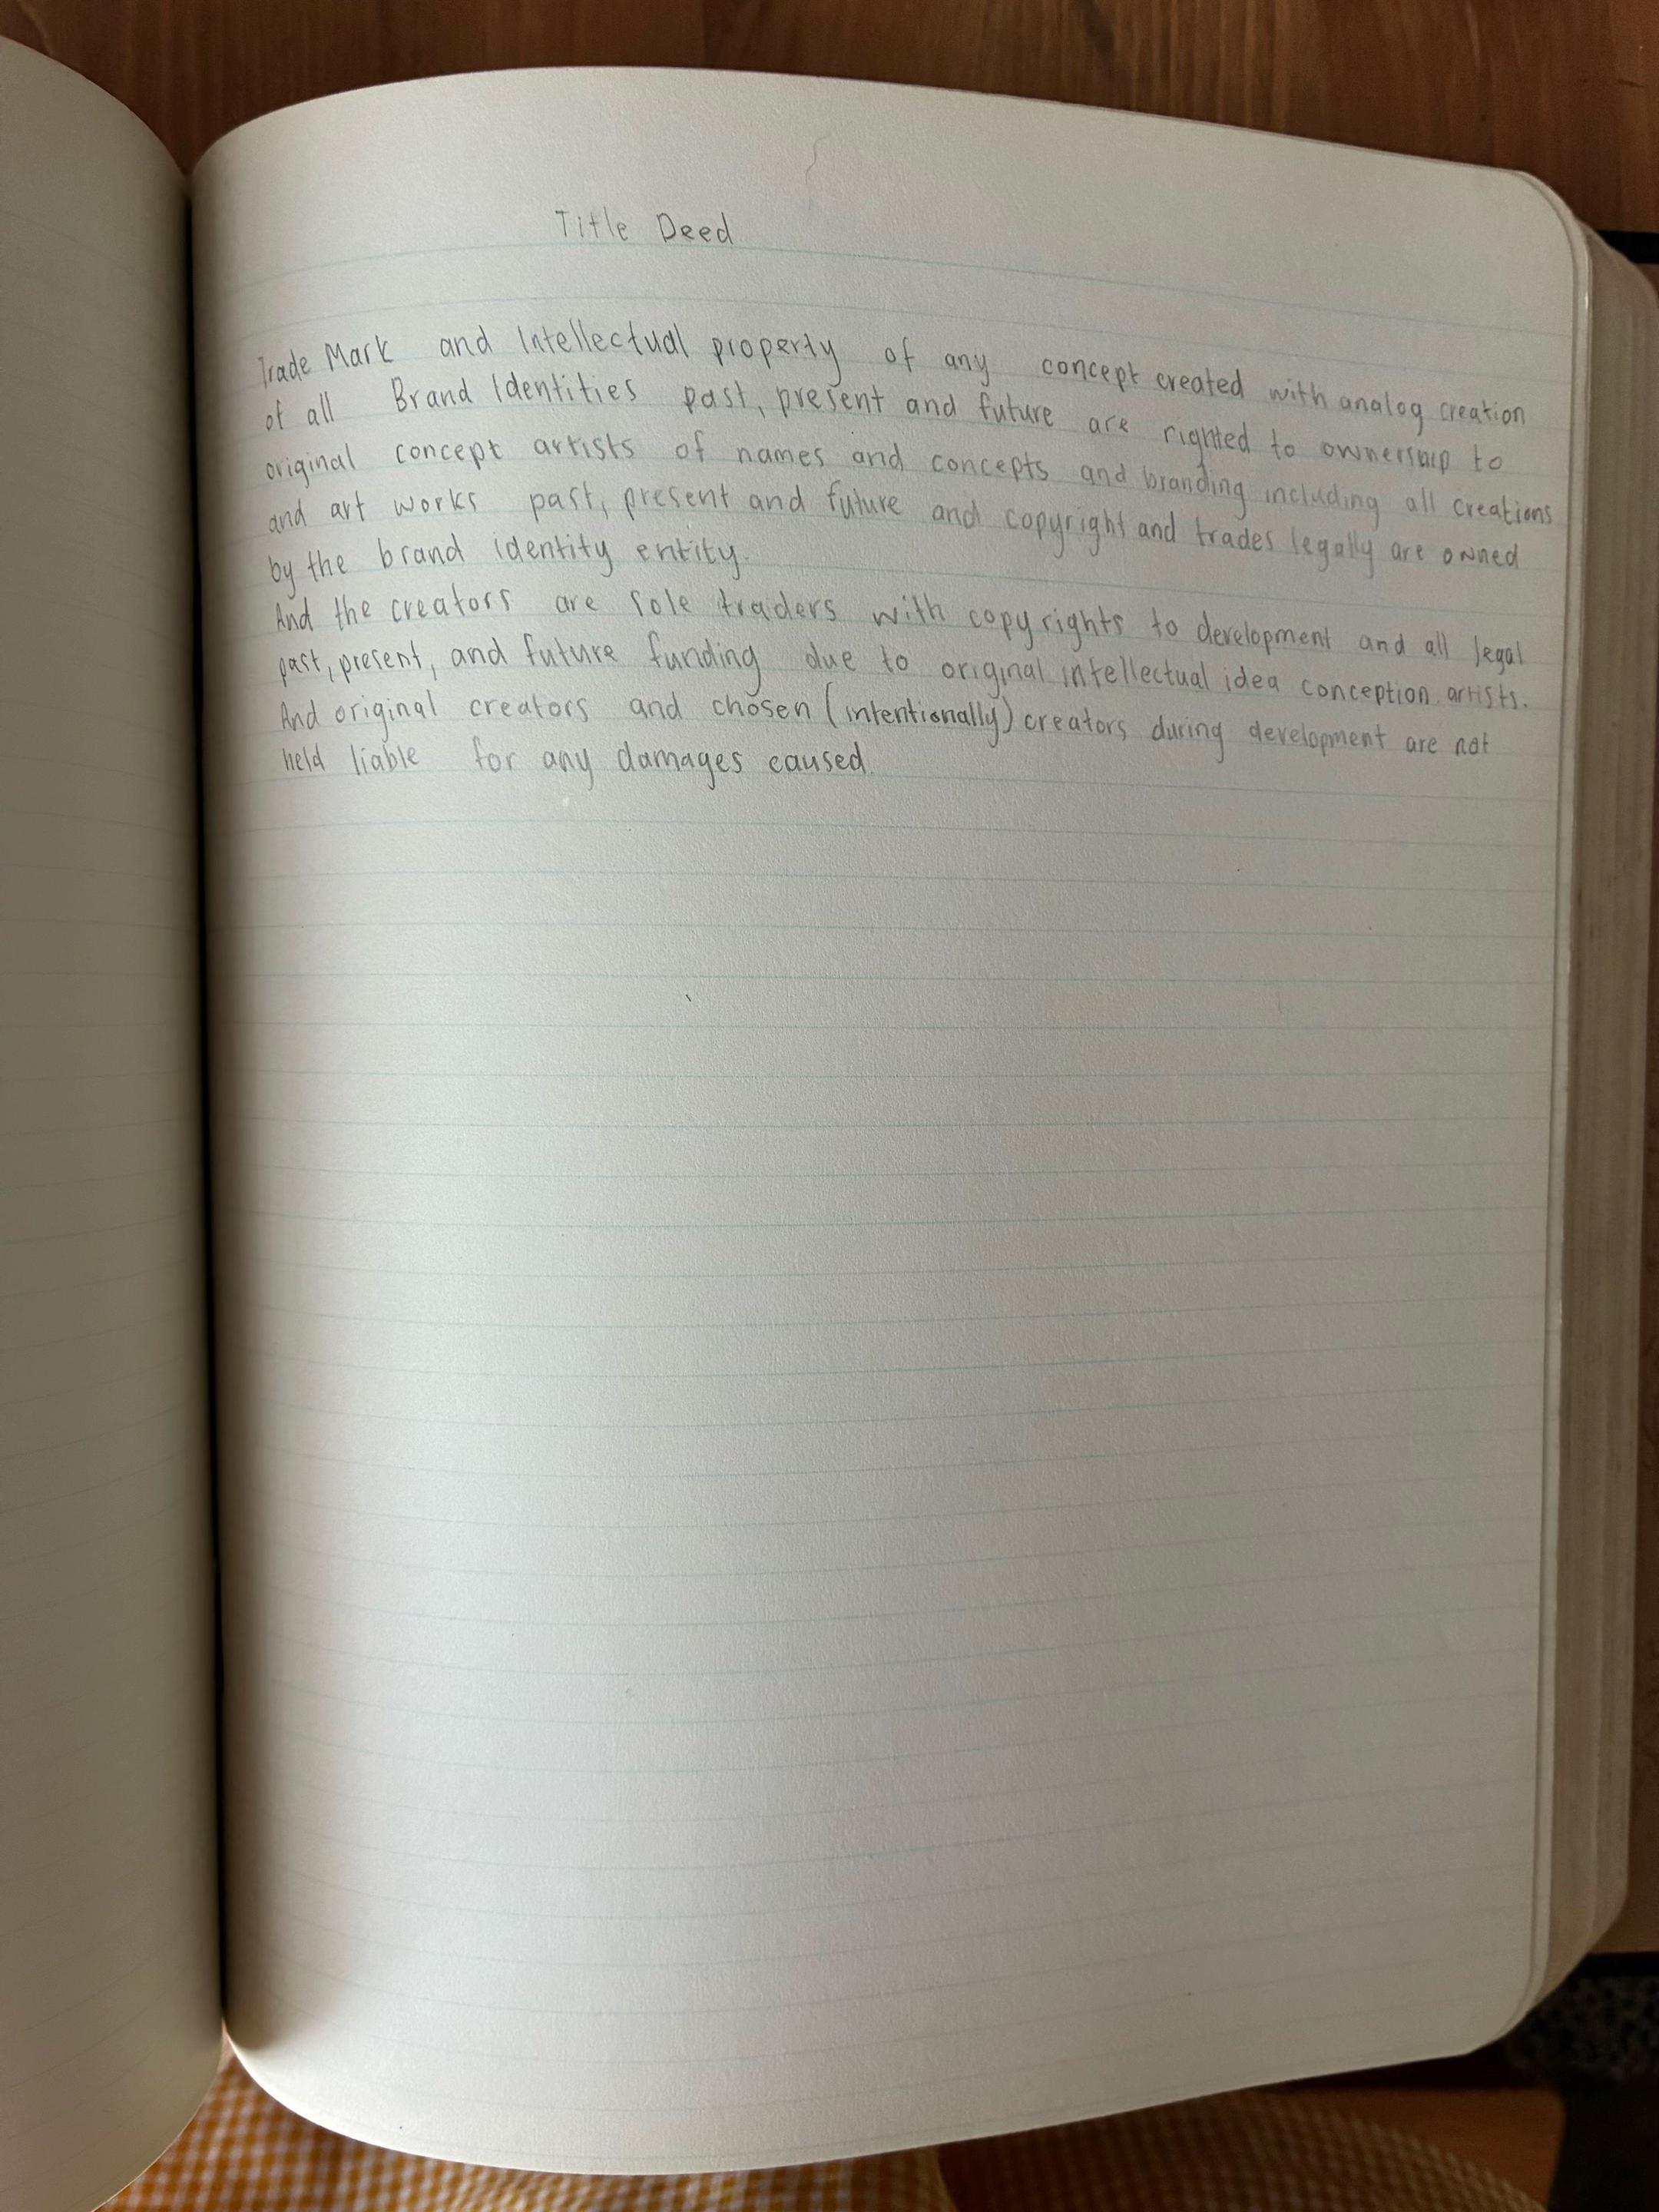 Title Deed
Trade Mark and Intellectual property of any concept created with analog creation
of all Brand Identities past, present and future are righted to ownership to
original concept artists of names and concepts and branding including all creations
and art works past, present and future and copyright and trades legally are owned
by the brand identity entity.
And the creators are sole traders with copyrights to development and all legal
past, present, and future funding due to original intellectual idea conception artists.
And original creators and chosen (intentionally) creators during development are not
held liable for any damages caused.